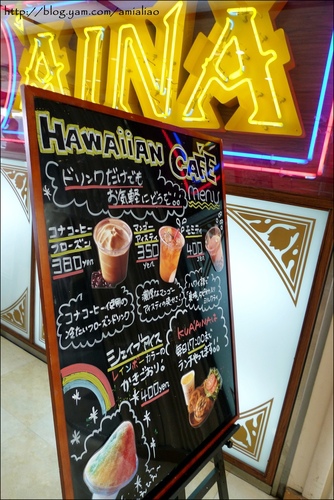 http://blog.yam.com/amialiao
AINA
HAWAiiAN CAFÉ
menu
ドリンクだけでも
お気軽にどうぞ!!
コナコーヒー
フローズン
380yen
マンゴー
アイスティ
350
yen
400
yen
コナコーヒー使用の
冷たいフローズンドリンク
シェイブアイス
レインボーカラーの
かきごおり。
400yen
KUA'AINAは
毎日17:00まで
ランチやってます!!